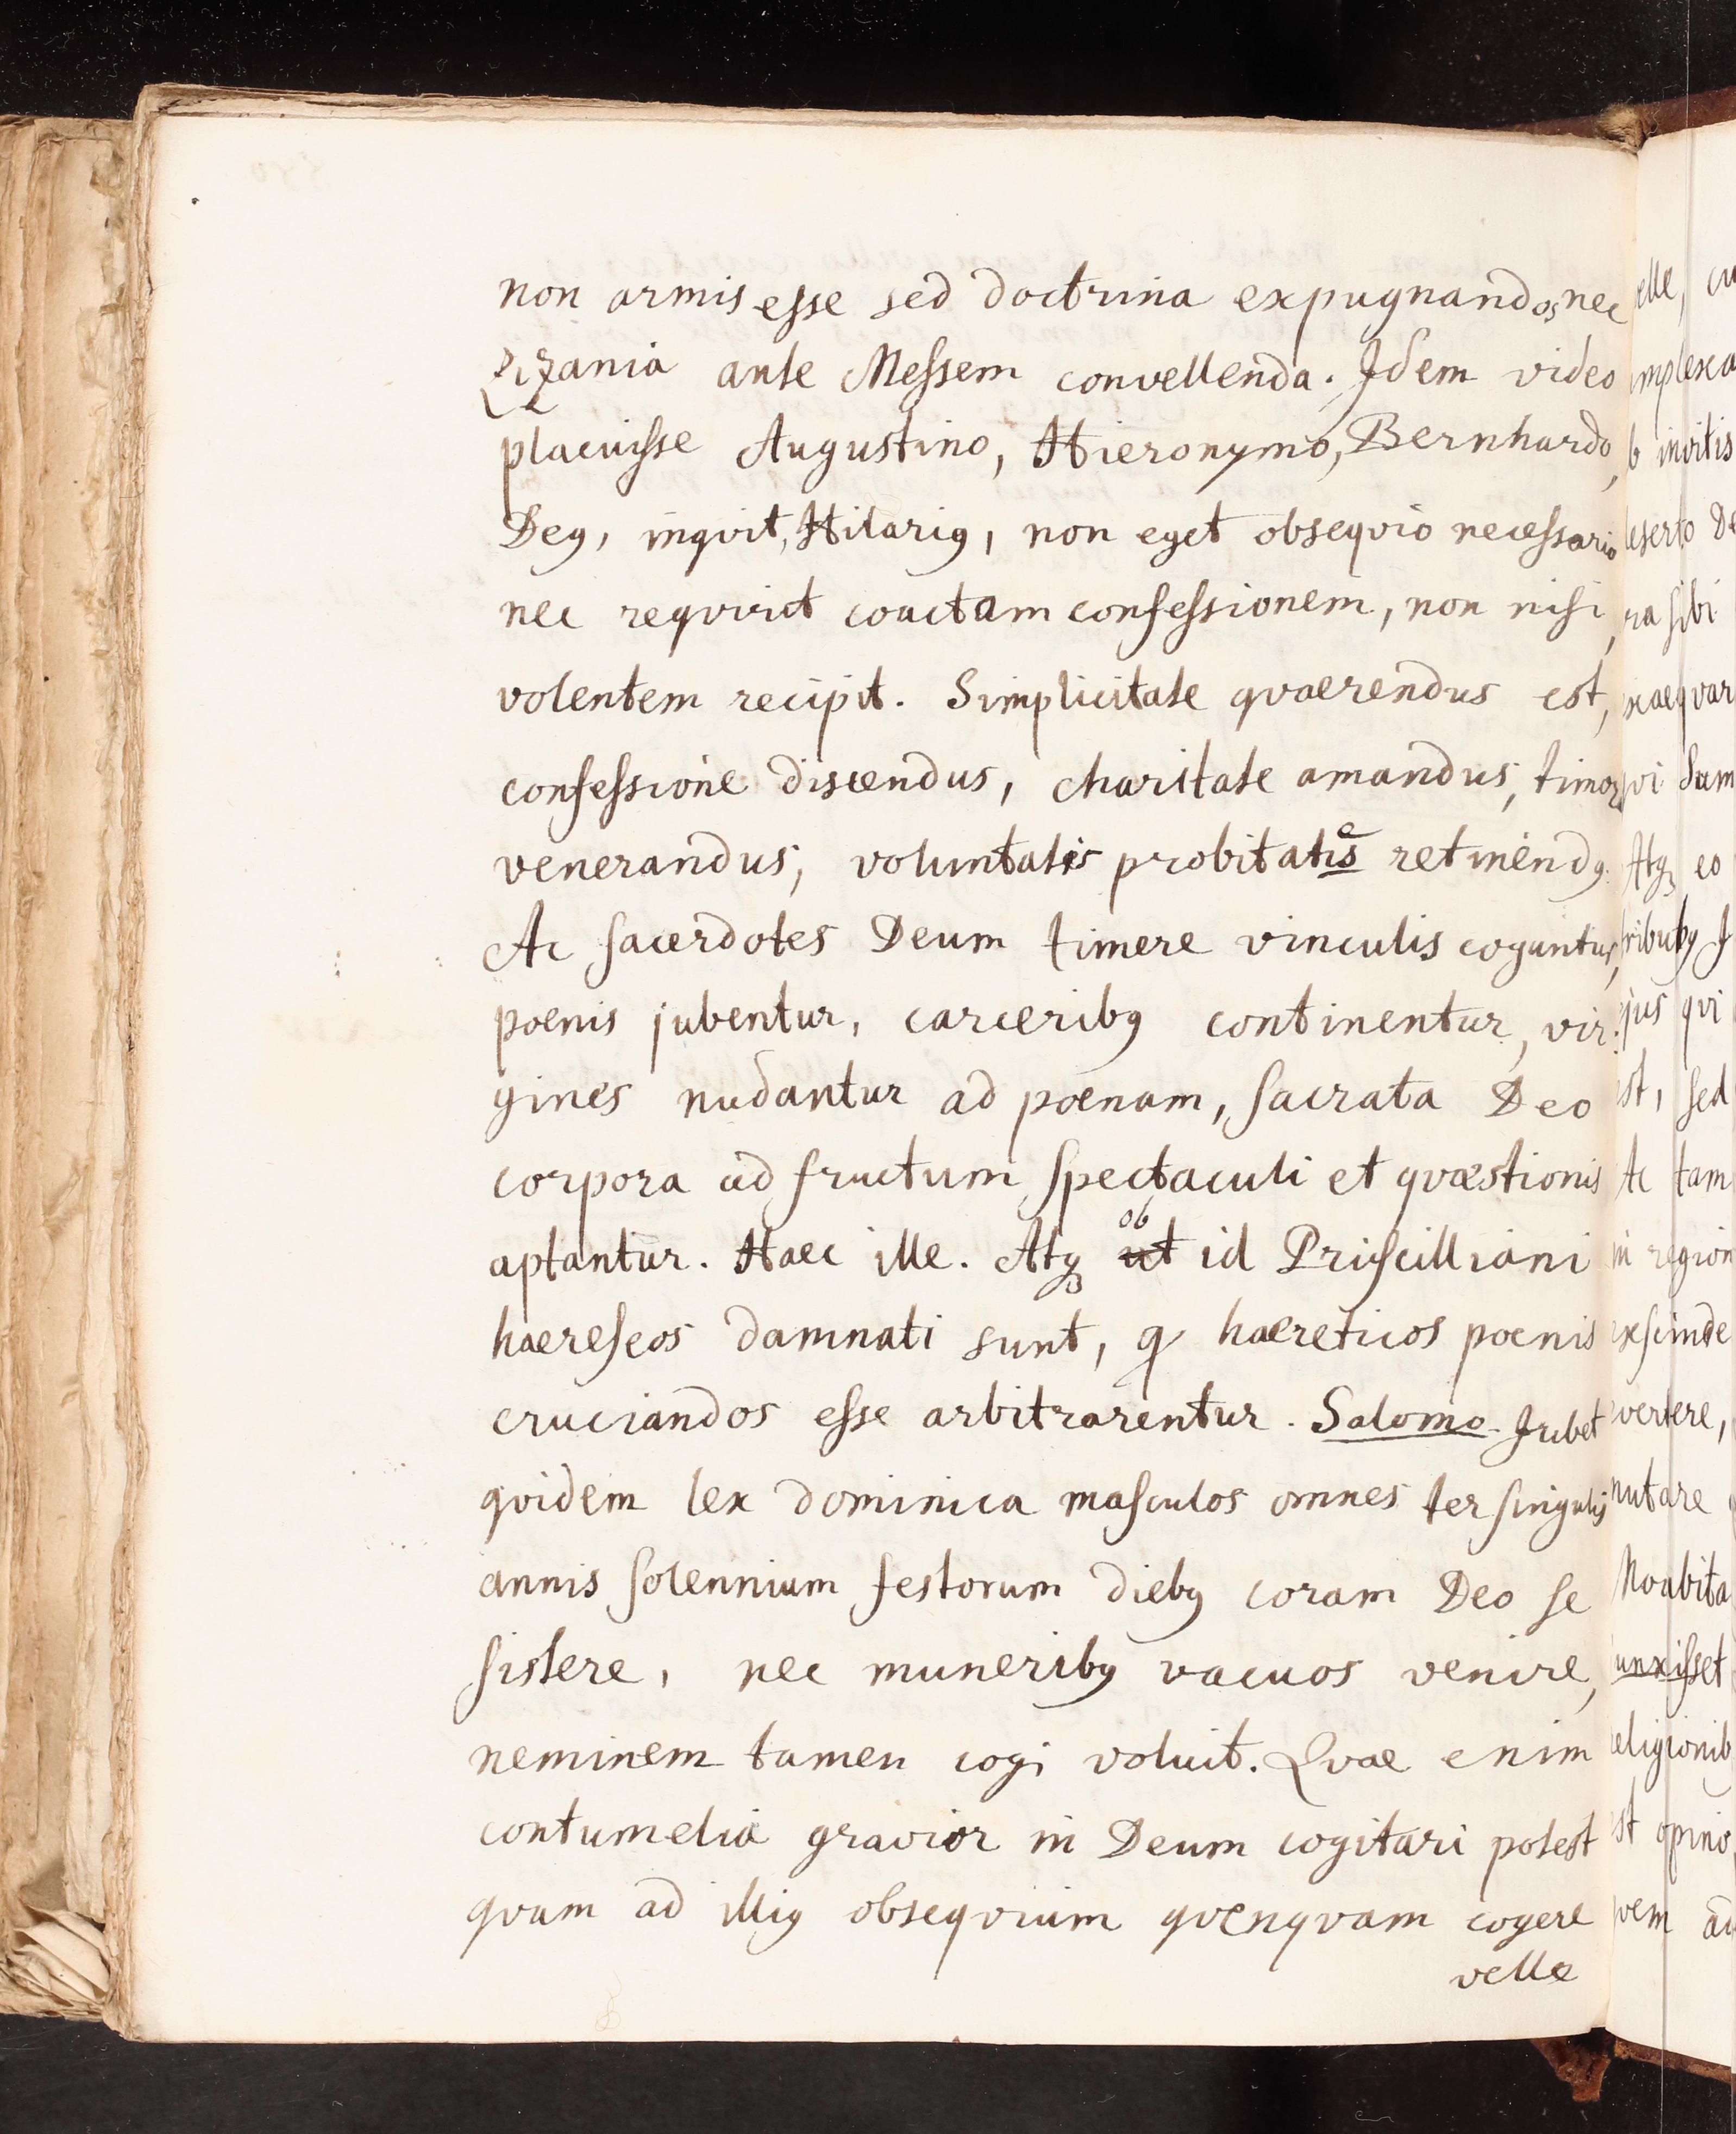 non armis esse sed doctrina expugnandos, nec
Zizania ante Messem convellenda. Idem video
placuisse Augustino, Hieronymo, Bernhardo,
Deꝰ, inqvit, Hilariꝰ, non eget obseqvio necessario
nec reqvirit coactam confessionem, non nisi
volentem recipit. Simplicitate qvaerendus est,
confessione discendus, charitate amandus, timore
venerandus, voluntatis probitatis e retinendꝰ.
Ac sacerdotes Deum timere vinculis coguntur,
poenis jubentur, carceribꝰ continentur, vir-
gines nudantur ad poenam, sacrata Deo
corpora ad fructum spectaculi et qvæstionis
aptantur. Haec ille. Atqꝫ ut ob id Priscilliani
haereseos damnati sunt, ꝙ haereticos poenis
cruciandos esse arbitrarentur. Salomo. Jubet
qvidem lex dominica masculos omnes ter singulis
annis solennium festorum diebꝰ coram Deo se
sistere, nec muneribꝰ vacuos venire,
neminem tamen cogi voluit. Qvae enim
contumelia gravior in Deum cogitari potest
qvam ad illiꝰ obseqvium qvenqvam cogere
velle